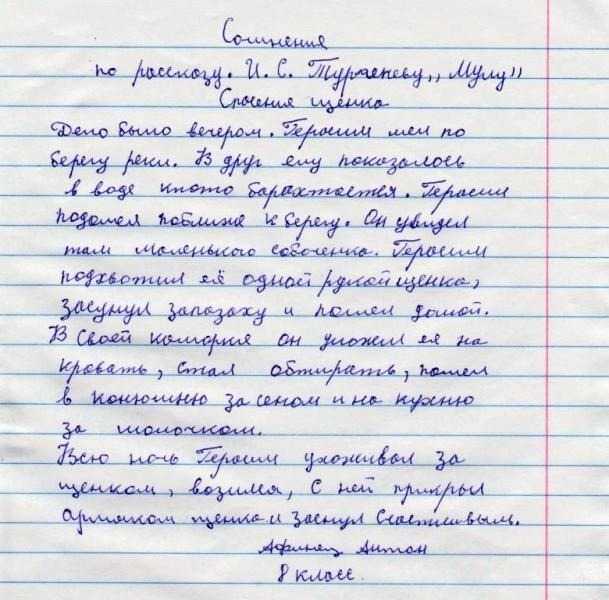 Сочинения
по рассказу. И. С. Тургеневу,, Муму"
Спасения щенка
Дело было вечером. Герасим шел по
берегу реки. В друг ему показалось
в воде ктото барахтается. Герасим
подошел поближе к берегу. Он увидел
там маленького собоченка. Герасим
подхватил её одной рукой щенка,
засунул запазаху и пошел домой.
В своей каморке он уложил ея на
кровать, стал обтирать, пошел
в конюшню за сеном и на кухню
за молочком.
Всю ночь Герасим ухаживал за
щенком, возился, с ней прикрыл
армяком щенка и заснул счастливым.
Афинец Антон
8 класс.